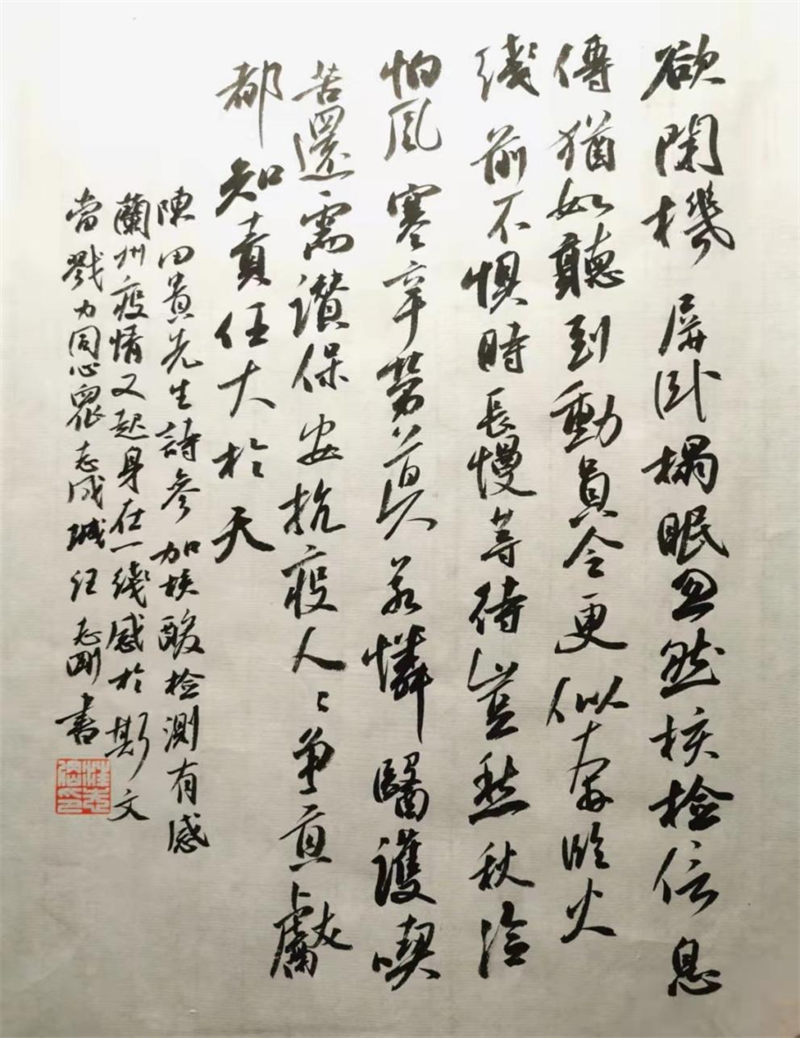 欲關機屏臥榻眠忽然核檢信息
傳猶如聽到動員令更似奔臨火
綫前不懼時長慢等待豈愁秋冷
怕風寒辛勞真若憐醫護喫
苦還需讚保安抗疫人々爭貢獻
都知責任大於天
陳田貴先生詩參加核酸檢測有感
蘭州疫情又起身在一綫感於斯文
當戮力同心眾志成城汪志剛書